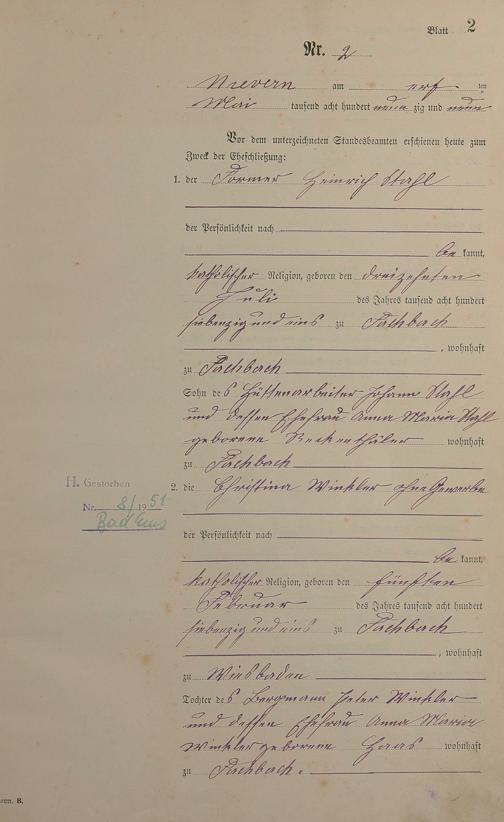 Blatt 2
Nr. 2
Nievern am ten
Mai tausend acht hundert neun zig und neun
Vor dem unterzeichneten Standesbeamten erschienen heute zum
Zweck der Eheschließung:
1. der Former Heinrich Stahl
der Persönlichkeit nach
be kannt,
katholischer Religion, geboren den dreizehnten
Juli des Jahres tausend acht hundert
siebenzig und eins zu Fachbach
, wohnhaft
zu Fachbach
Sohn des Hüttenarbeiter Johann Stahl
und dessen Ehefrau Anna Maria Stahl
geborene wohnhaft
zu Fachbach
H. Gestorben
Nr. 8/1951
Bad Ems
2. die Christina Winkler ohne Gewerbe
der Persönlichkeit nach
be kannt,
katholischer Religion, geboren den fünften
Februar des Jahres tausend acht hundert
siebenzig und eins zu Fachbach
, wohnhaft
zu Wiesbaden
Tochter des Bergmann Peter Winkler
und dessen Ehefrau Anna Maria
Winkler geborene Haas wohnhaft
zu Fachbach.
B.